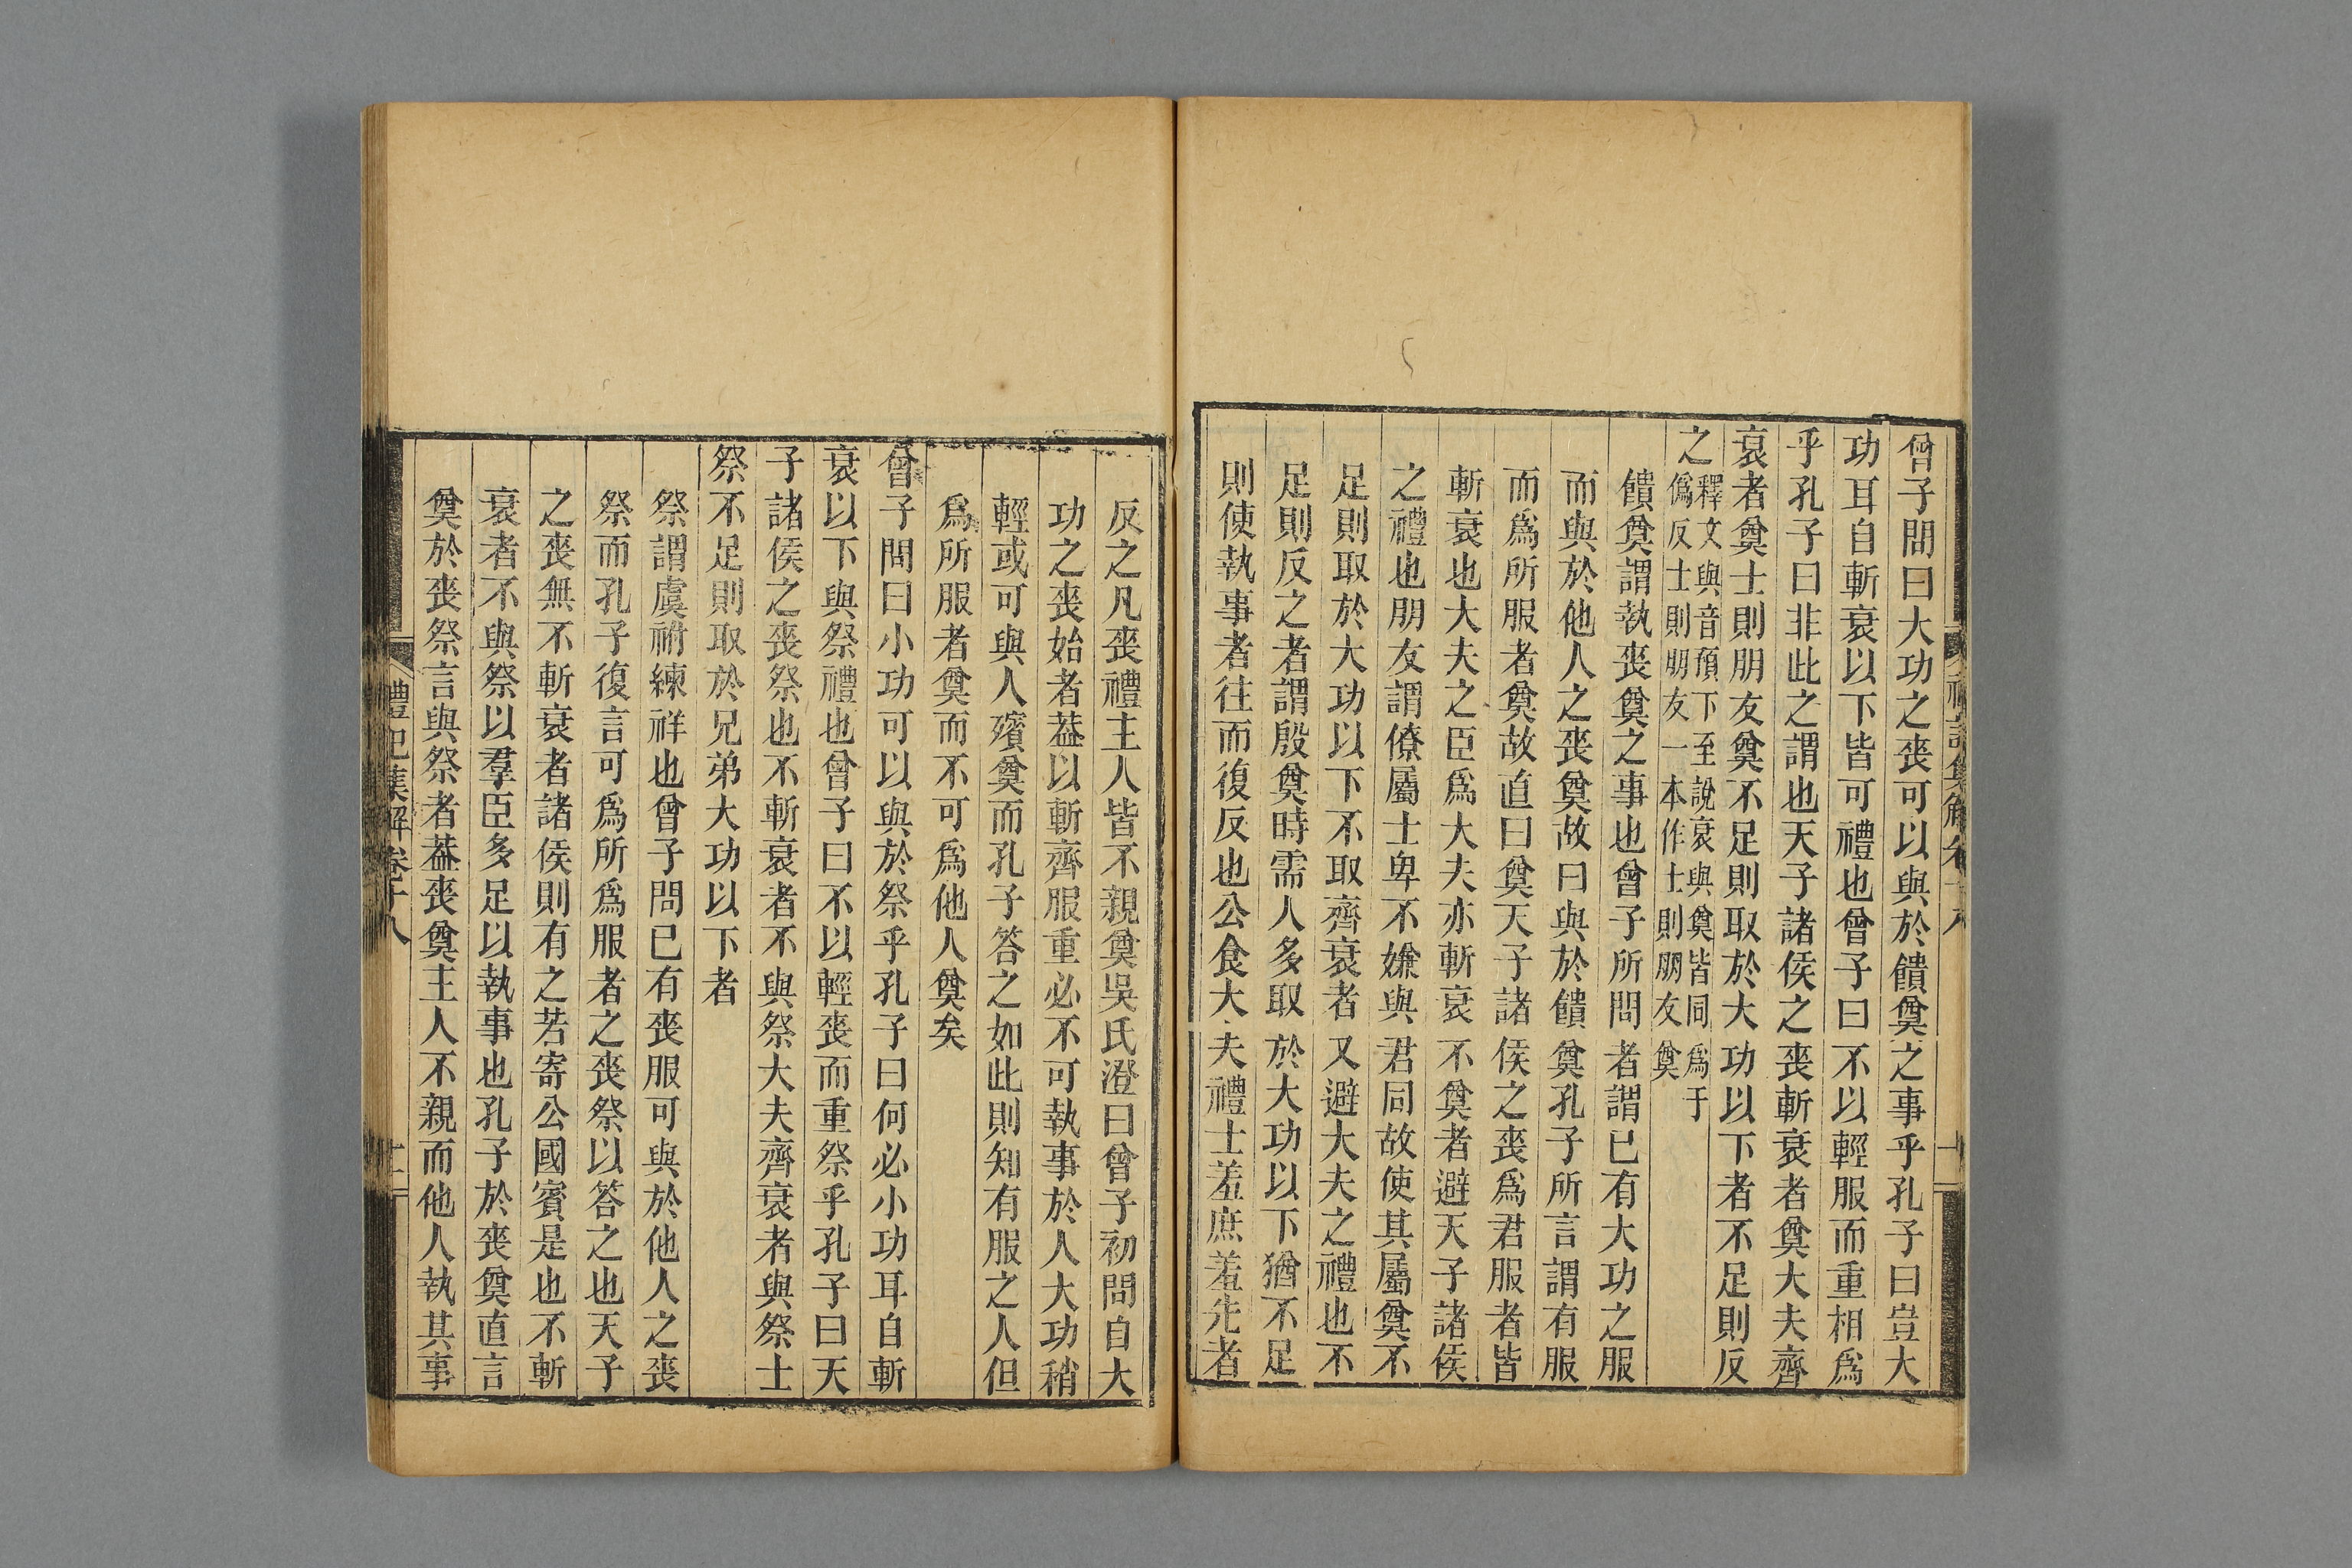 曾子問曰大功之喪可以與於饋奠之事乎孔子曰豈大
功耳自斬衰以下皆可禮也曾子曰不以輕服而重相爲
乎孔子曰非此之謂也天子諸侯之喪斬衰者奠大夫齊
衰者奠士則朋友奠不足則取於大功以下者不足則反
之
釋文與音預下至說衰與奠皆同爲于
僞反士則朋友一本作士則朋友奠
饋奠謂執喪奠之事也曾子所問者謂已有大功之服
而與於他人之喪奠故曰與於饋奠孔子所言謂有服
而爲所服者奠故直曰奠天子諸侯之喪爲君服者皆
斬衰也大夫之臣爲大夫亦斬衰不奠者避天子諸侯
之禮也朋友謂僚屬士卑不嫌與君同故使其屬奠不
足則取於大功以下不取齊衰者又避大夫之禮也不
足則反之者謂殷奠時需人多取於大功以下猶不足
則使執事者往而復反也公食大夫禮士羞庶羞先者
反之凡喪禮主人皆不親奠吳氏澄曰曾子初問自大
功之喪始者葢以斬齊服重必不可執事於人大功稍
輕或可與人殯奠而孔子答之如此則知有服之人但
爲所服者奠而不可爲他人奠矣
曾子問曰小功可以與於祭乎孔子曰何必小功耳自斬
衰以下與祭禮也曾子曰不以輕喪而重祭乎孔子曰天
子諸侯之喪祭也不斬衰者不與祭大夫齊衰者與祭士
祭不足則取於兄弟大功以下者
祭謂虞祔練祥也曾子問已有喪服可與於他人之喪
祭而孔子復言可爲所爲服者之喪祭以答之也天子
之喪無不斬衰者諸侯則有之若寄公國賓是也不斬
衰者不與祭以羣臣多足以執事也孔子於喪奠直言
奠於喪祭言與祭者葢喪奠主人不親而他人執其事
禮記集解卷十八